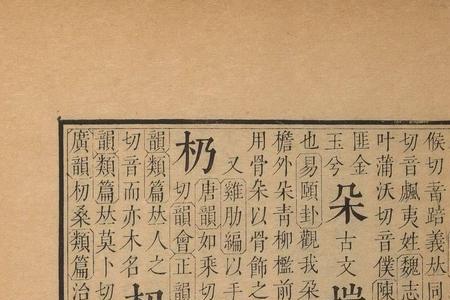 候切音踣義𠀤同
切音飊夷姓魏志
叶蒲沃切音僕陳
匪金
玉兮
朵
古文
也易頤卦觀我朵
檐外朵靑柳檻前
用骨朵以骨飾之
又雞肋編以手
唐韻如乘切
切韻會正韻
韻類篇𠀤人之
切音而亦木名
韻類篇𠀤莫卜切
廣韻杒桑類篇治